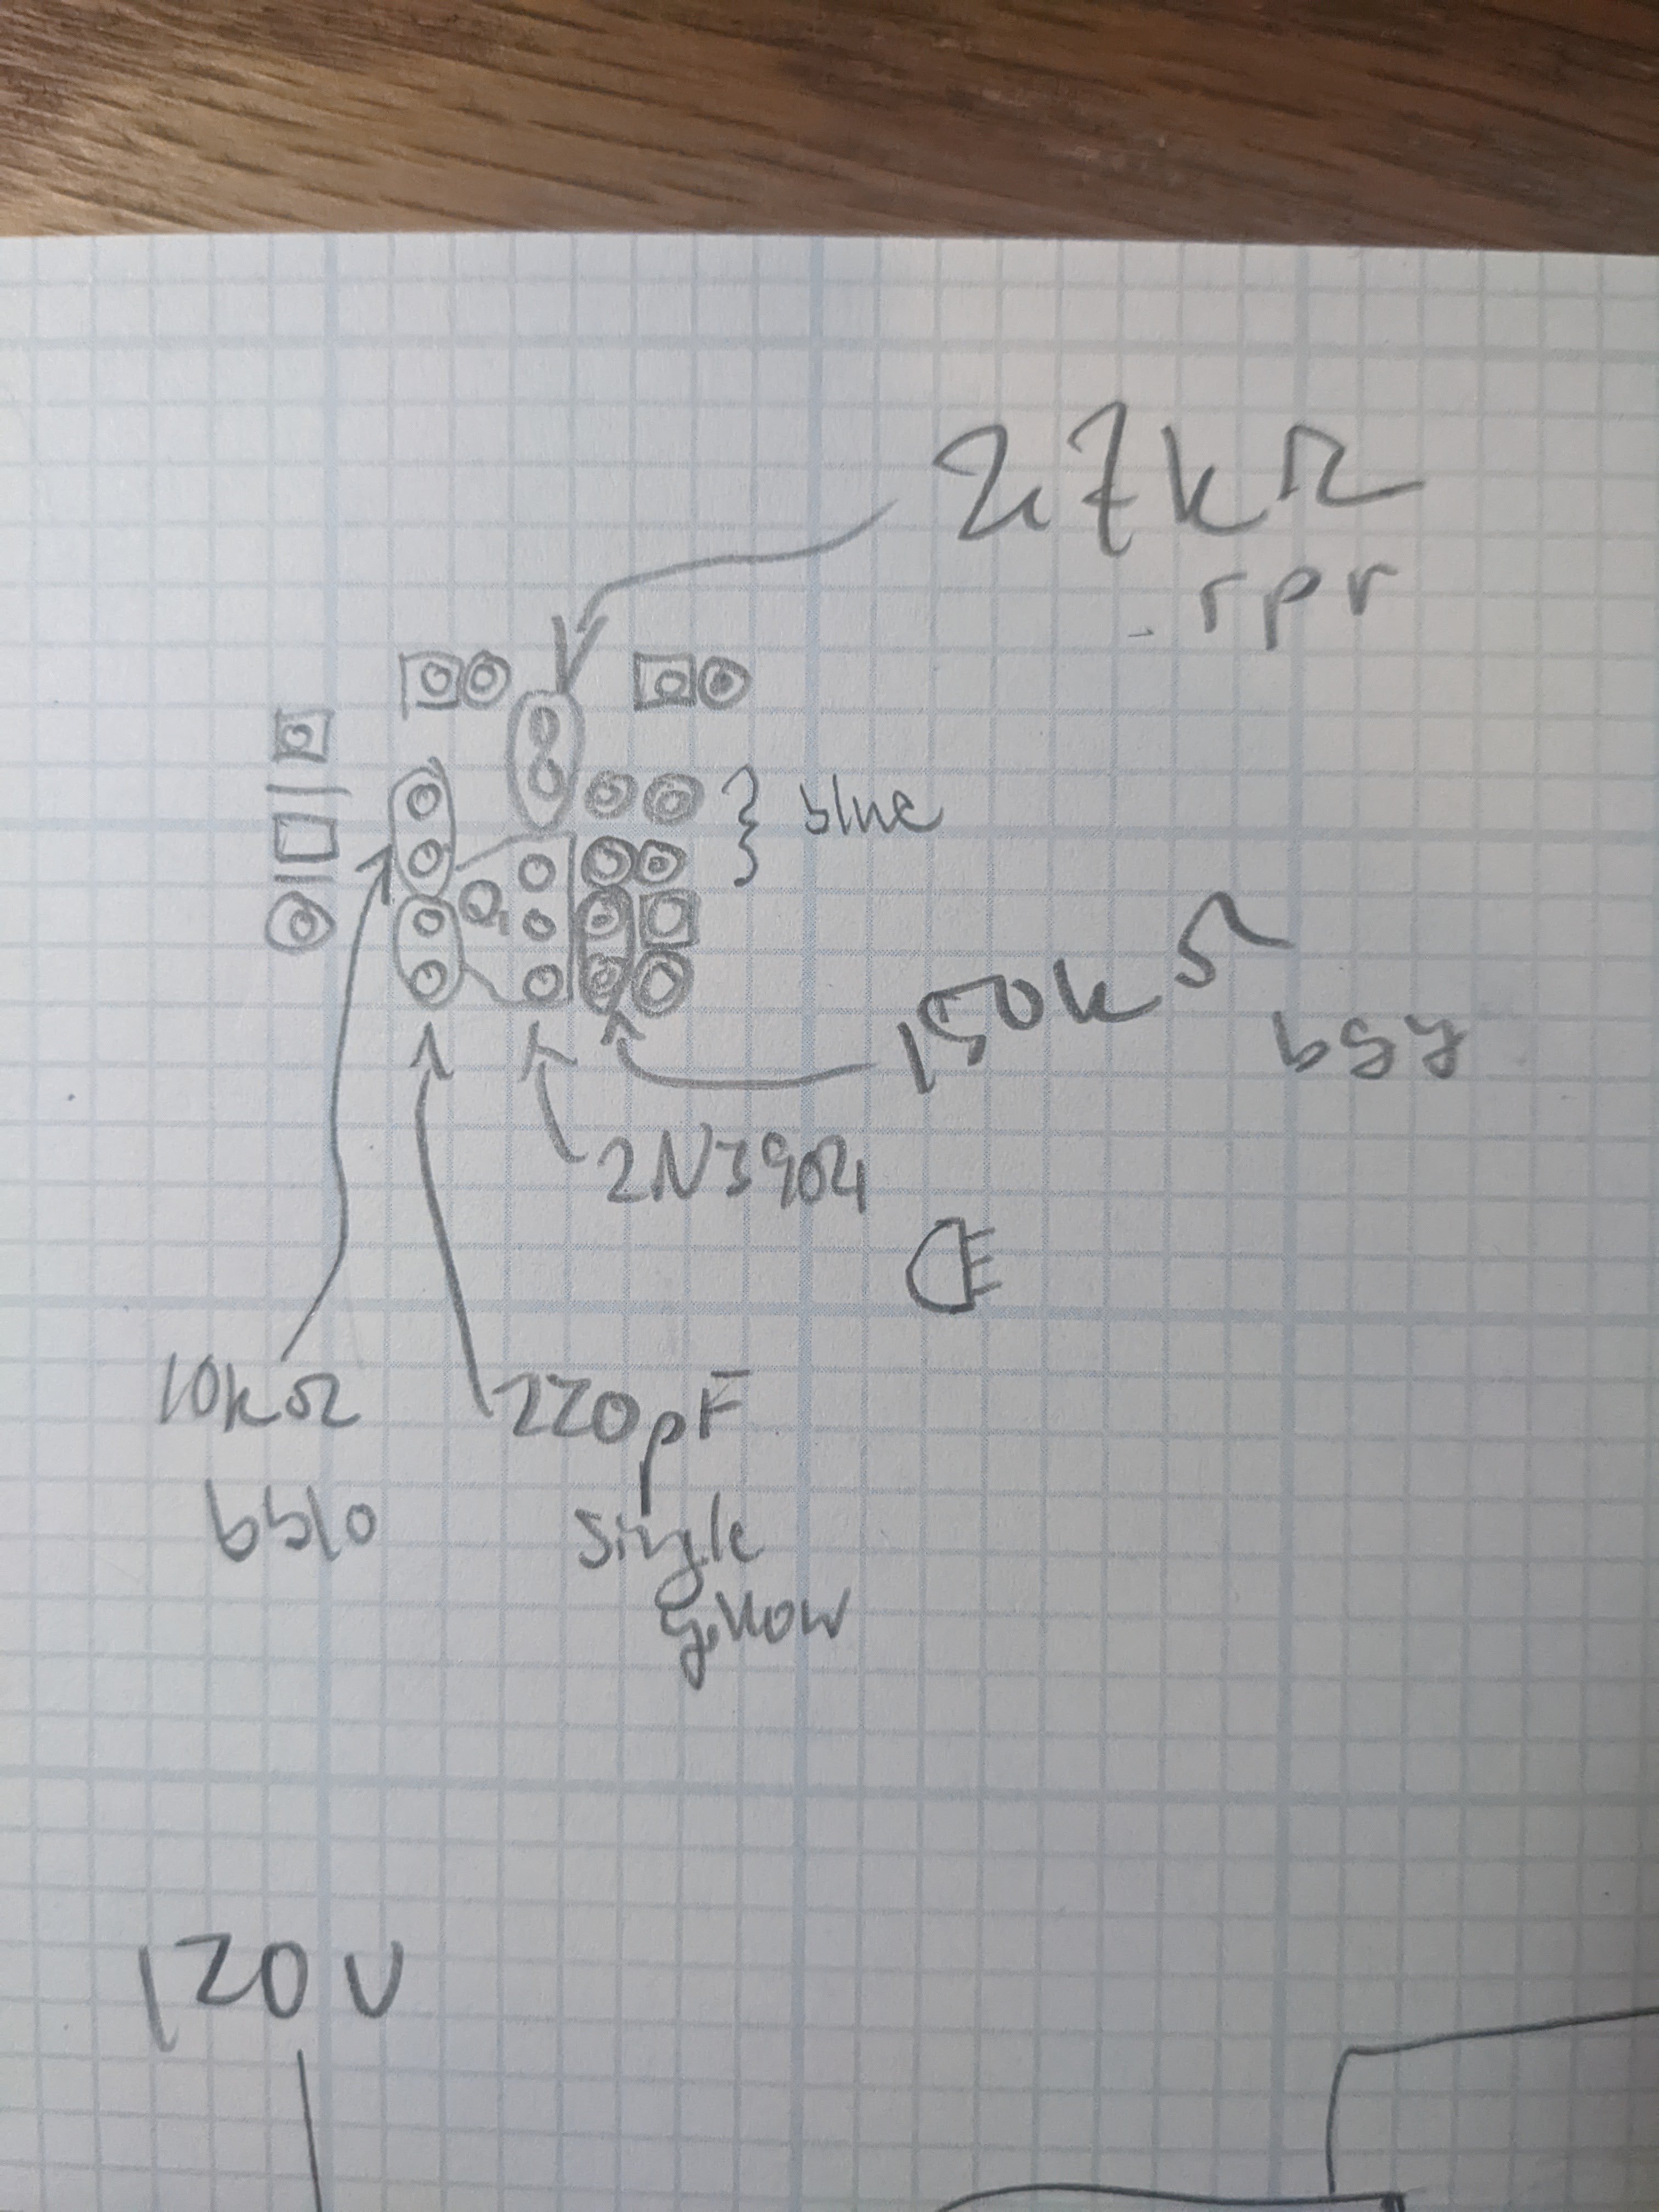 2.7kΩ
rpr
blue
150kΩ
bgy
2N3904
10kΩ
bblo
220pF
single
yellow
120V